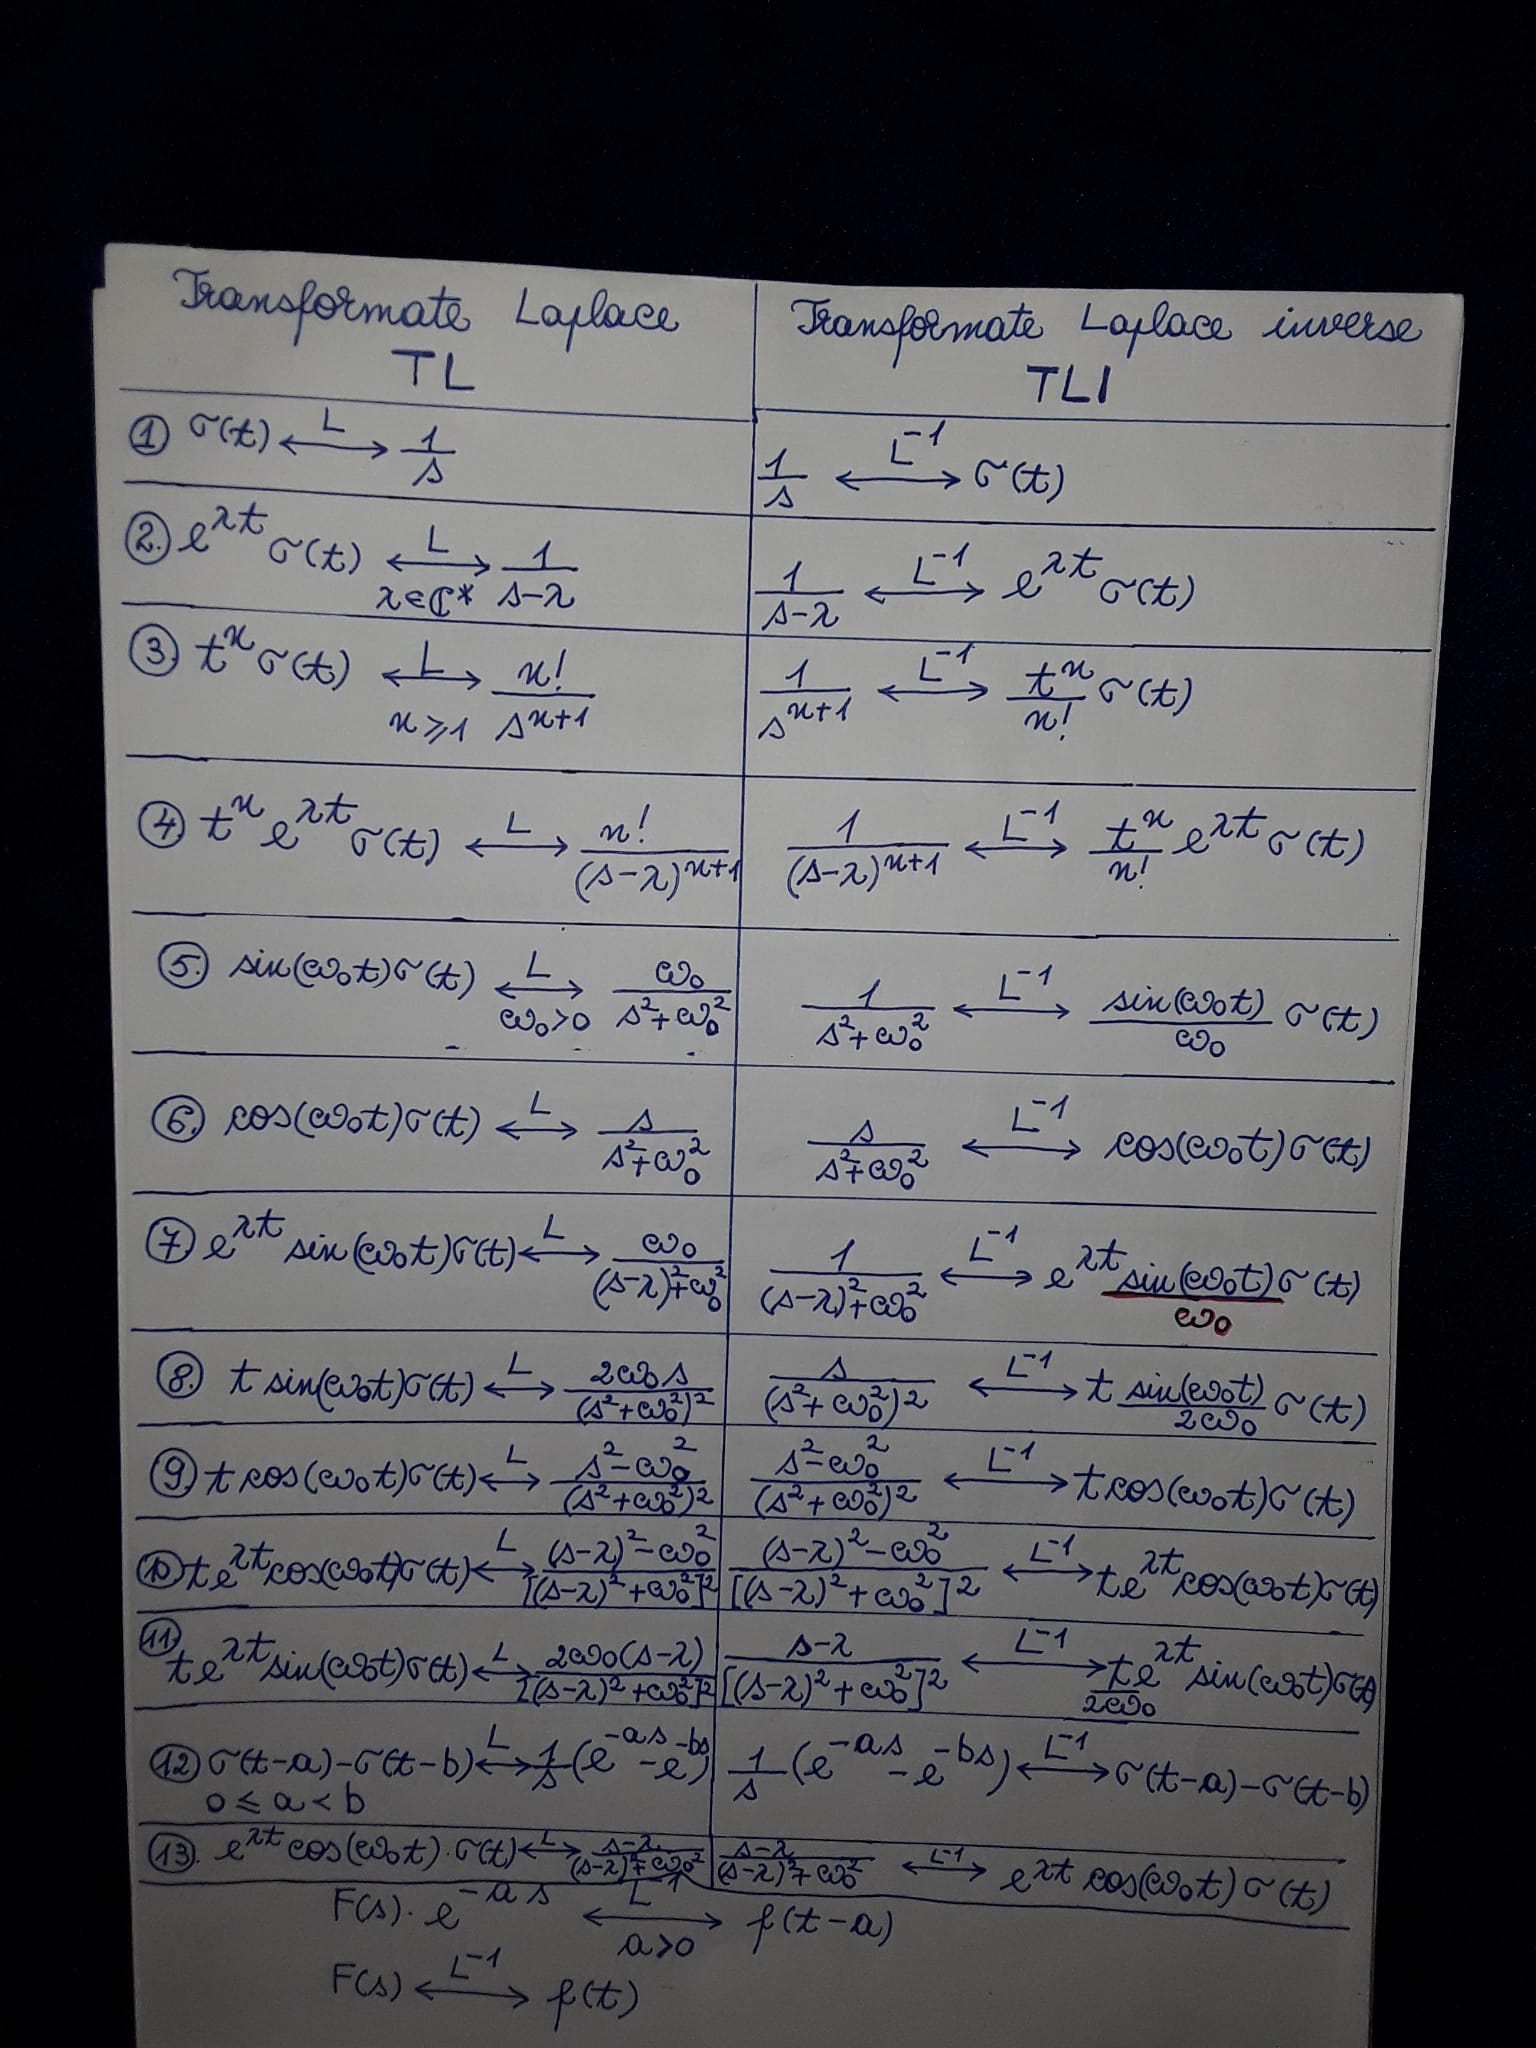 Transformate Laplace TL | Transformate Laplace inverse TLI
① σ(t) ⟷^L 1/s | 1/s ⟷^{L^-1} σ(t)
②. e^{λt} σ(t) ⟷^L_{λ∈ℂ*} 1/(s-λ) | 1/(s-λ) ⟷^{L^-1} e^{λt} σ(t)
③. t^n σ(t) ⟷^L_{n≥1} n!/s^{n+1} | 1/s^{n+1} ⟷^{L^-1} t^n/n! σ(t)
④. t^n e^{λt} σ(t) ⟷^L n!/(s-λ)^{n+1} | 1/(s-λ)^{n+1} ⟷^{L^-1} t^n/n! e^{λt} σ(t)
⑤. sin(ω₀t)σ(t) ⟷^L_{ω₀>0} ω₀/(s²+ω₀²) | 1/(s²+ω₀²) ⟷^{L^-1} sin(ω₀t)/ω₀ σ(t)
⑥. cos(ω₀t)σ(t) ⟷^L s/(s²+ω₀²) | s/(s²+ω₀²) ⟷^{L^-1} cos(ω₀t)σ(t)
⑦. e^{λt} sin(ω₀t)σ(t) ⟷^L ω₀/((s-λ)²+ω₀²) | 1/((s-λ)²+ω₀²) ⟷^{L^-1} e^{λt} sin(ω₀t)/ω₀ σ(t)
⑧. t sin(ω₀t)σ(t) ⟷^L 2ω₀s/(s²+ω₀²)² | s/(s²+ω₀²)² ⟷^{L^-1} t sin(ω₀t)/2ω₀ σ(t)
⑨. t cos(ω₀t)σ(t) ⟷^L (s²-ω₀²)/(s²+ω₀²)² | (s²-ω₀²)/(s²+ω₀²)² ⟷^{L^-1} t cos(ω₀t)σ(t)
⑩ t e^{λt} cos(ω₀t)σ(t) ⟷^L ((s-λ)²-ω₀²)/[(s-λ)²+ω₀²]² | ((s-λ)²-ω₀²)/[(s-λ)²+ω₀²]² ⟷^{L^-1} t e^{λt} cos(ω₀t)σ(t)
⑪ t e^{λt} sin(ω₀t)σ(t) ⟷^L 2ω₀(s-λ)/[(s-λ)²+ω₀²]² | (s-λ)/[(s-λ)²+ω₀²]² ⟷^{L^-1} t/2ω₀ e^{λt} sin(ω₀t)σ(t)
⑫ σ(t-a)-σ(t-b) ⟷^L 1/s (e^{-as} - e^{-bs}) | 1/s (e^{-as} - e^{-bs}) ⟷^{L^-1} σ(t-a)-σ(t-b)
0 ≤ a < b
⑬. e^{λt} cos(ω₀t)·σ(t) ⟷^L (s-λ)/((s-λ)²+ω₀²) | (s-λ)/((s-λ)²+ω₀²) ⟷^{L^-1} e^{λt} cos(ω₀t)σ(t)
F(s)·e^{-as} ⟷^{L^-1}_{a>0} f(t-a)
F(s) ⟷^{L^-1} f(t)